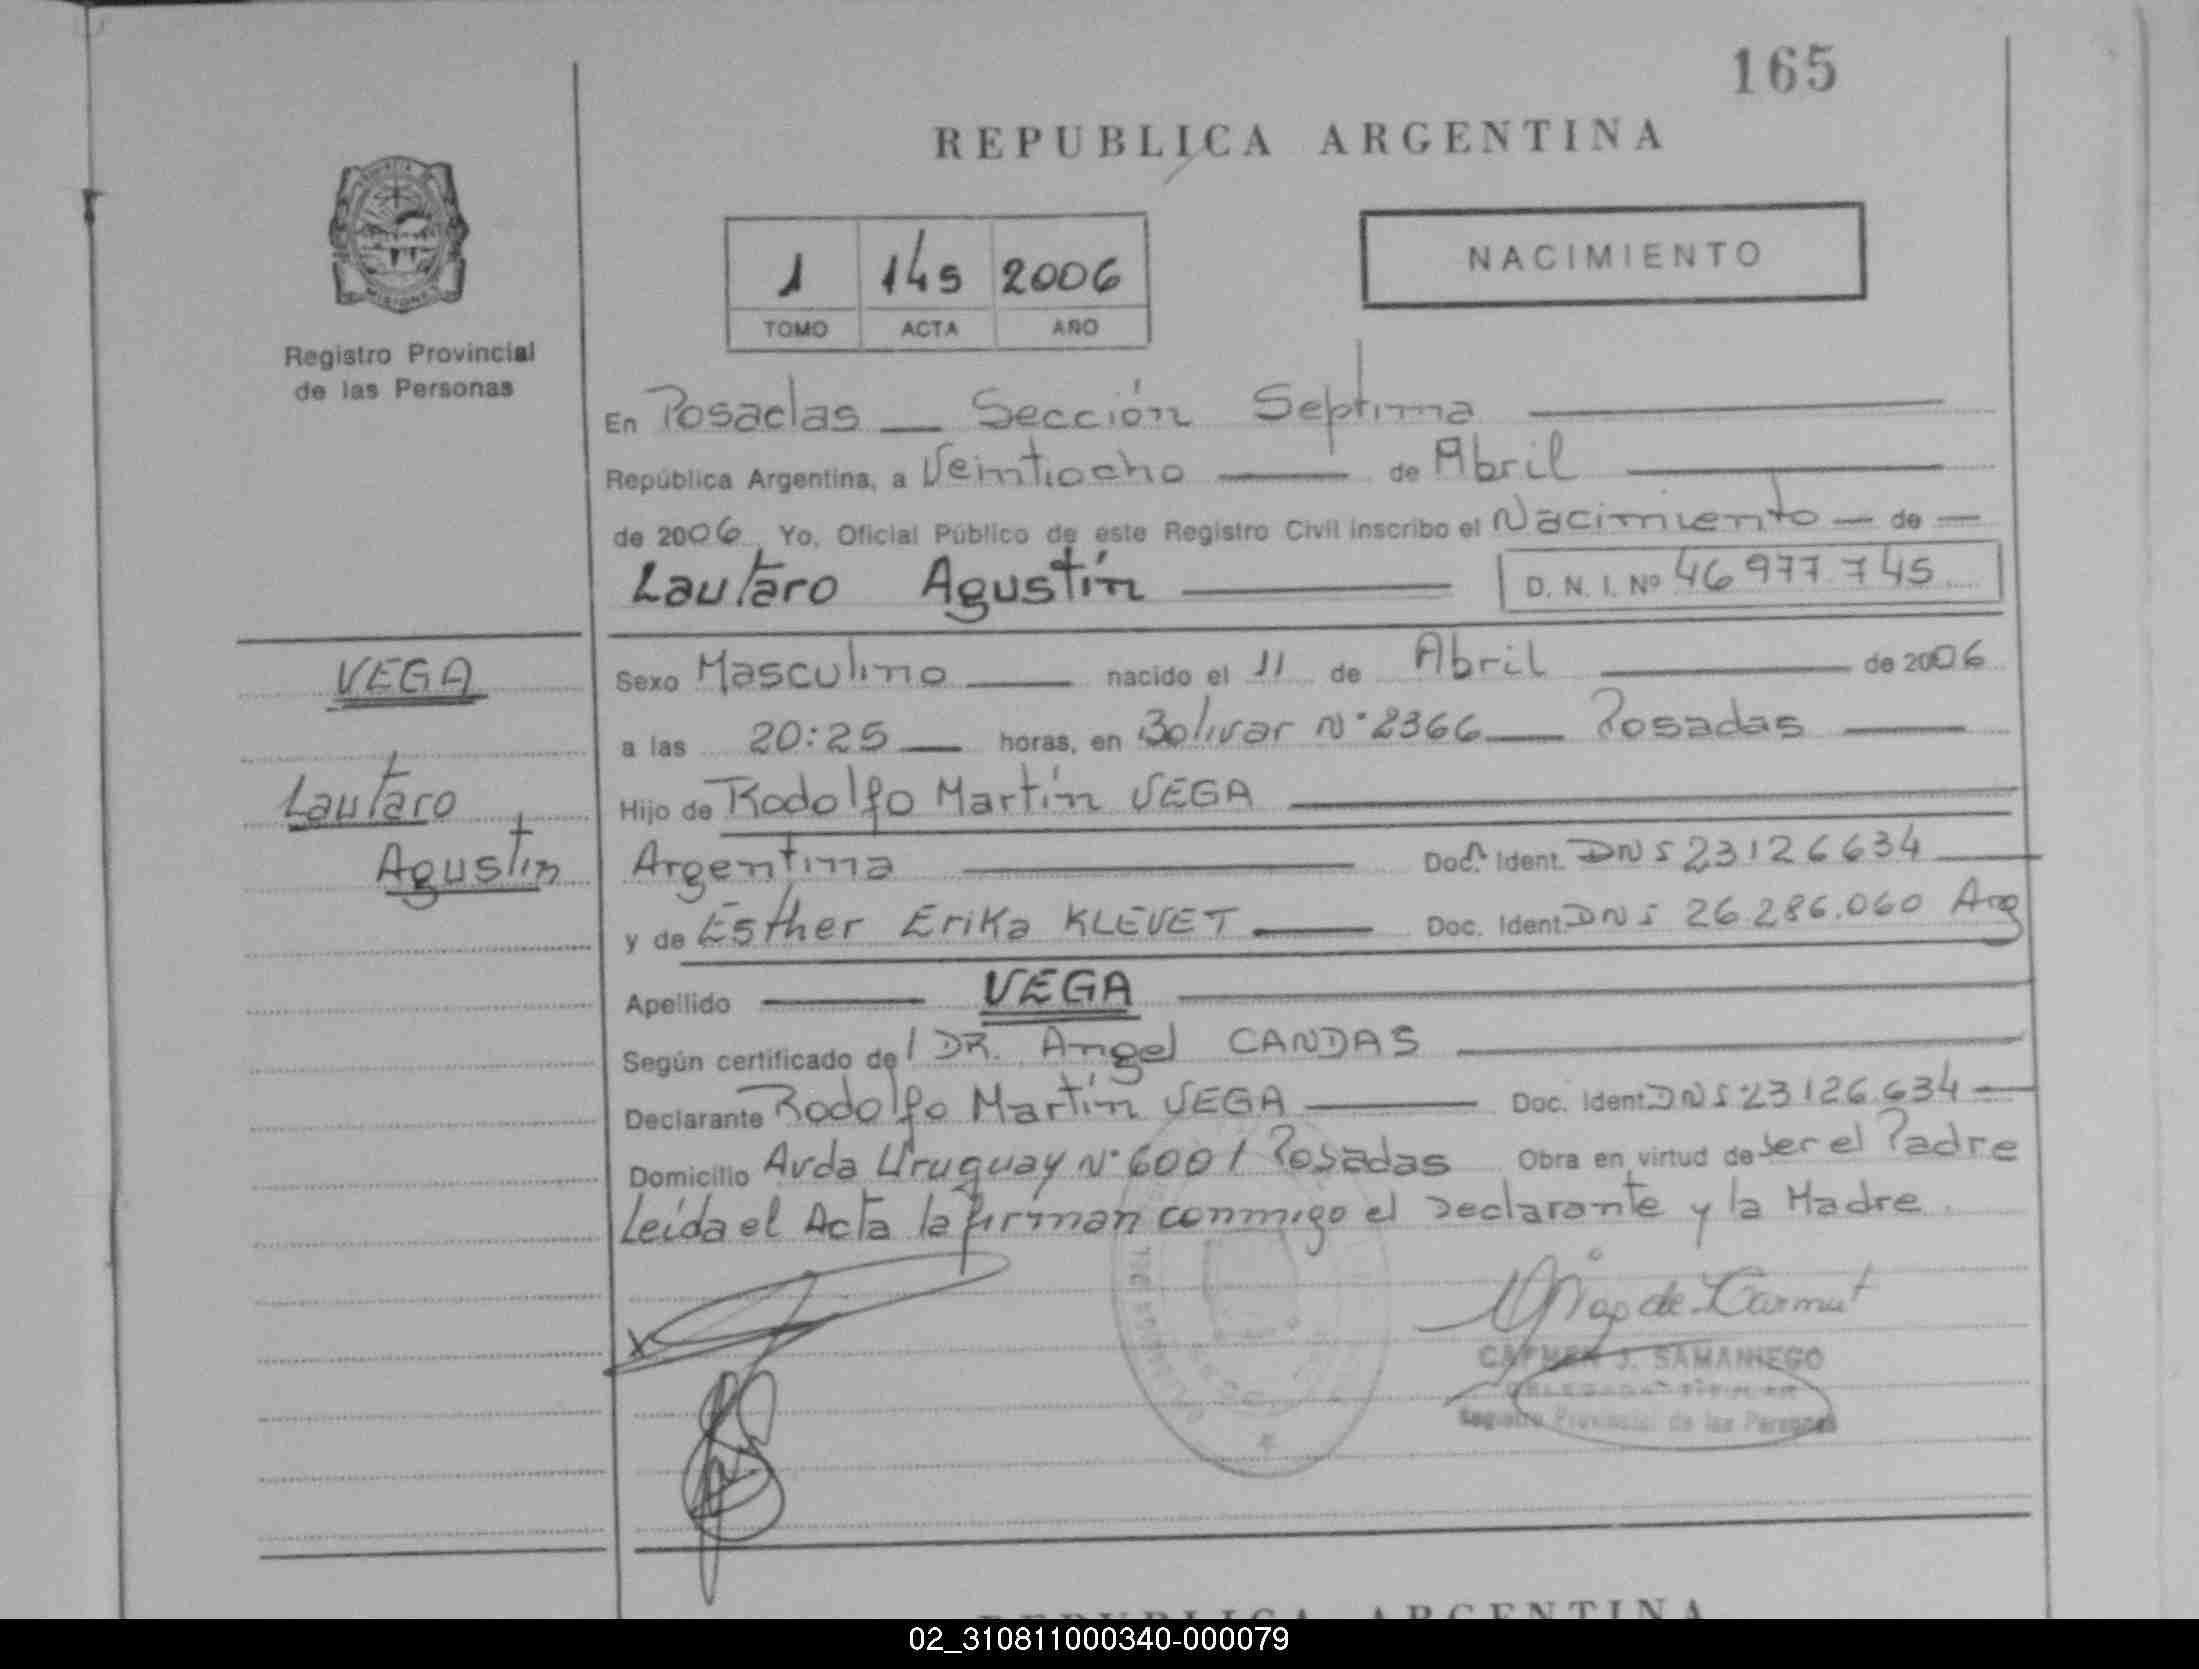 165
REPUBLICA ARGENTINA
1 145 2006
TOMO ACTA AÑO
NACIMIENTO
Registro Provincial
de las Personas
En Posadas — Sección Septima
República Argentina, a Veintiocho — de Abril
de 2006 Yo, Oficial Público de este Registro Civil inscribo el Nacimiento — de —
Lautaro Agustín — D. N. I. Nº 46 977 745
VEGA
Lautaro
Agustin
Sexo Masculino — nacido el 11 de Abril — de 2006
a las 20:25 — horas, en Bolivar Nº 2366 — Posadas —
Hijo de Rodolfo Martín VEGA
Argentina — Doc. Ident. DNI 23126634
y de Esther Erika KLEVET — Doc. Ident. DNI 26.286.060 Arg
Apellido — VEGA
Según certificado del DR. Angel CANDAS
Declarante Rodolfo Martín VEGA — Doc. Ident. DNI 23126.634 —
Domicilio Avda Uruguay Nº 6001 Posadas Obra en virtud de ser el Padre
Leída el Acta la firman conmigo el Declarante y la Madre.
CARMEN J. SAMANIEGO
Registro Provincial de las Personas
REPUBLICA ARGENTINA
02_310811000340-000079